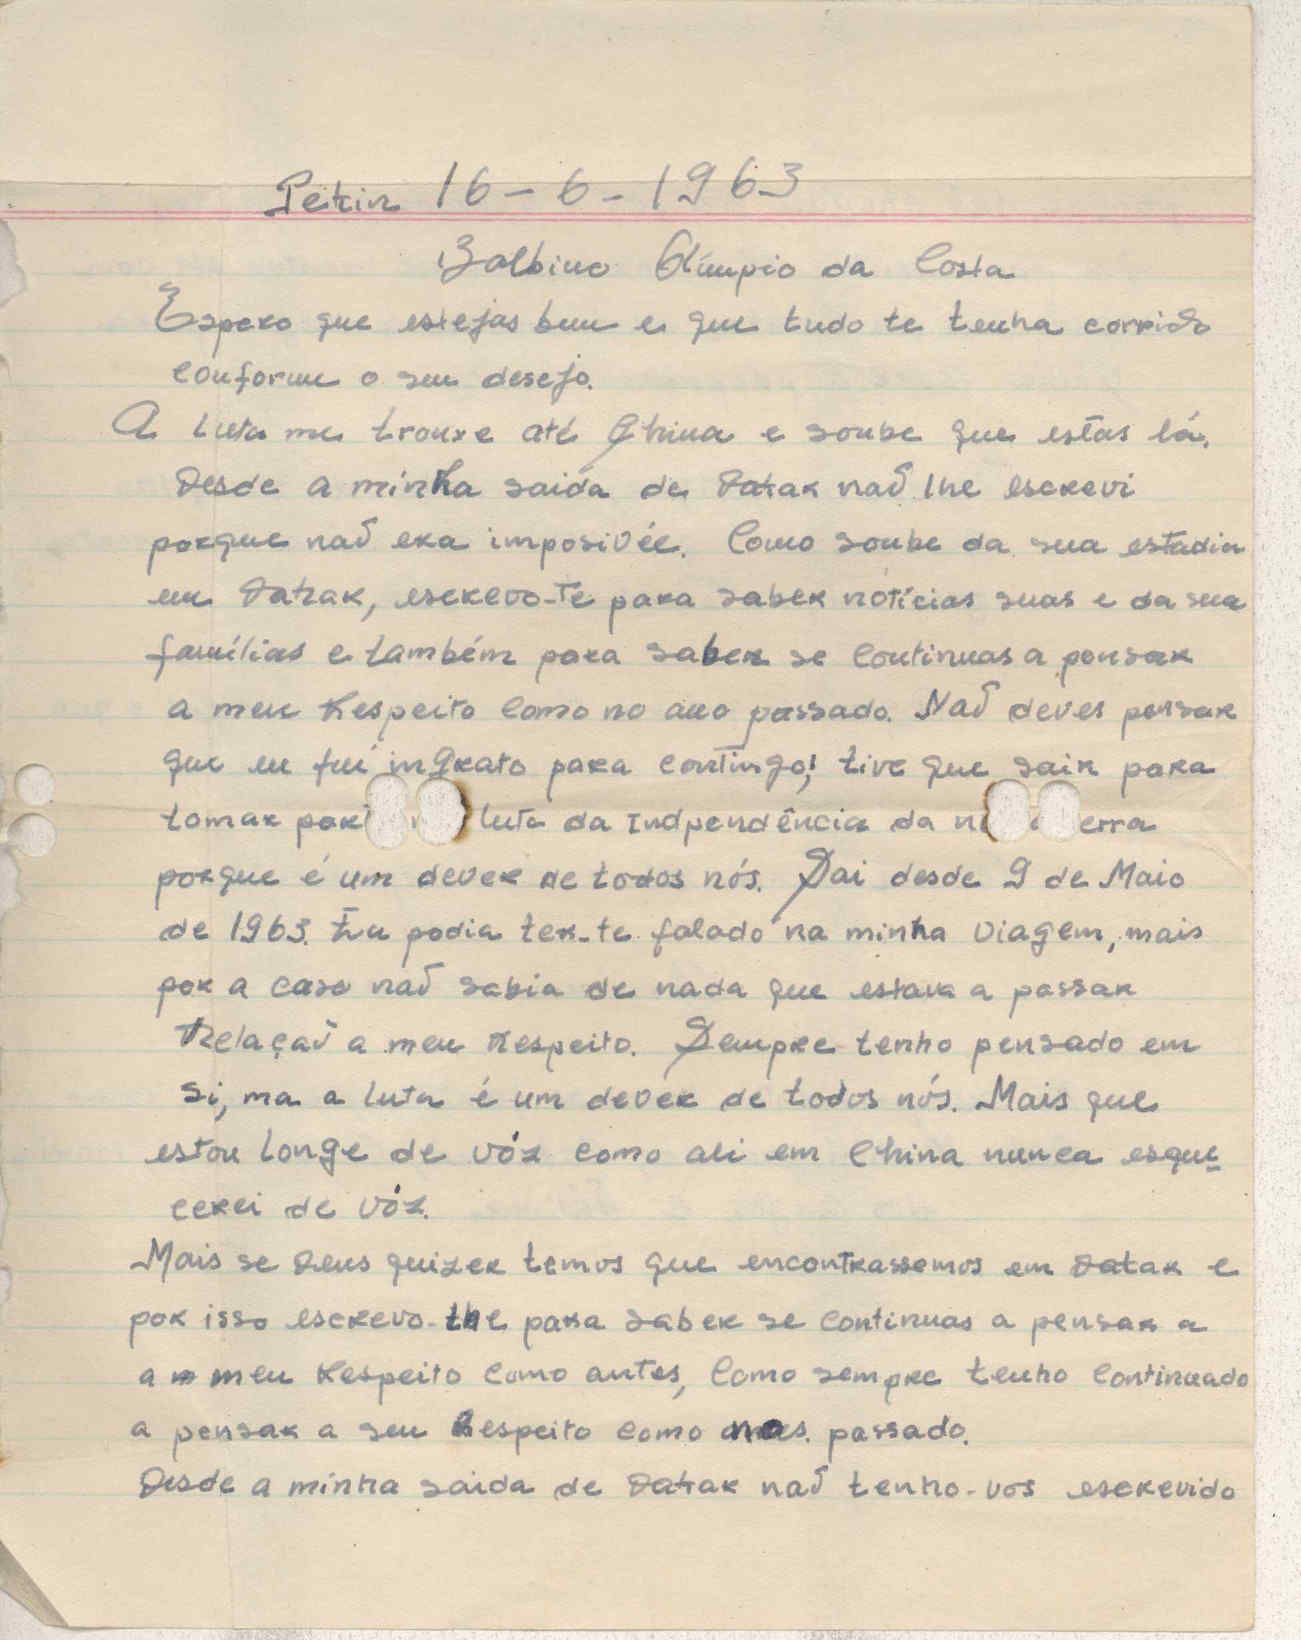 Pekin 16-6-1963
Balbino Olímpio da Costa
Espero que estejas bem e que tudo te tenha corrido
conforme o seu desejo.
A luta me trouxe até China e soube que estás lá.
Desde a minha saida de Dakar naõ lhe escrevi
porque naõ era imposivél. Como soube da sua estadia
em Dakar, escrevo-te para saber noticias suas e da sua
famílias e também para saber se continuas a pensar
a meu Respeito como no ano passado. Naõ deves pensar
que eu fui ingrato para contingo; tive que sair para
tomar luta da Indpendência da erra
porque é um dever de todos nós. Sai desde 9 de Maio
de 1963. Eu podia ter-te falado na minha viagem, mais
por a caso naõ sabia de nada que estava a passar
Relaçaõ a meu Respeito. Sempre tenho pensado em
si, ma a luta é um dever de todos nós. Mais que
estou longe de vóz como ali em China nunca esque
cerei de vóz.
Mais se Deus quizer temos que encontrassemos em Dakar e
por isso escrevo-lhe para saber se continuas a pensar a
a meu Respeito como antes, Como sempre tenho continuado
a pensar a seu Respeito como passado.
Desde a minha saida de Dakar naõ tenho-vos escrevido